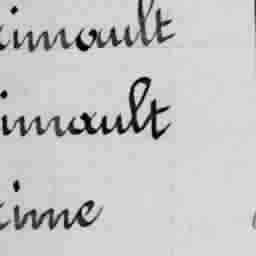 imault
imault
ime